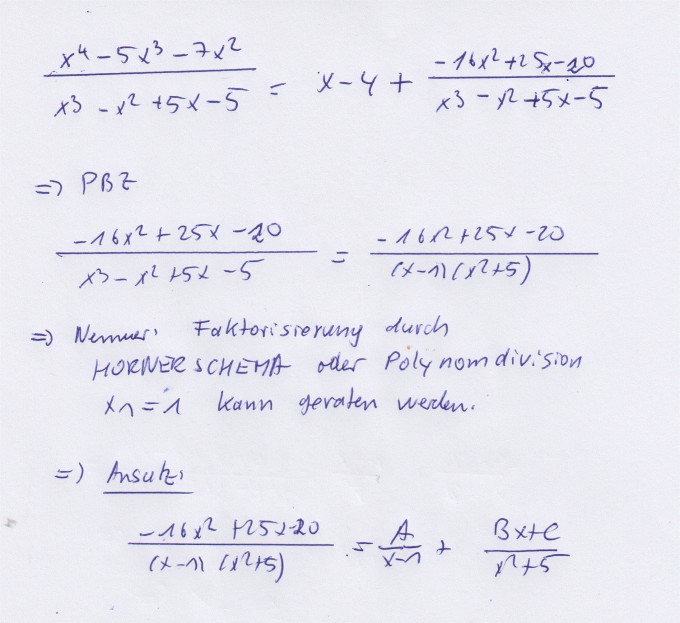 x⁴ - 5x³ - 7x² / x³ - x² + 5x - 5 = x - 4 + -16x² + 25x - 20 / x³ - x² + 5x - 5
=> PBZ
-16x² + 25x - 20 / x³ - x² + 5x - 5 = -16x² + 25x - 20 / (x-1)(x²+5)
=> Nenner: Faktorisierung durch
HORNERSCHEMA oder Polynomdivision
x₁ = 1 kann geraten werden.
=> Ansatz:
-16x² + 25x - 20 / (x-1)(x²+5) = A / x-1 + Bx+C / x²+5